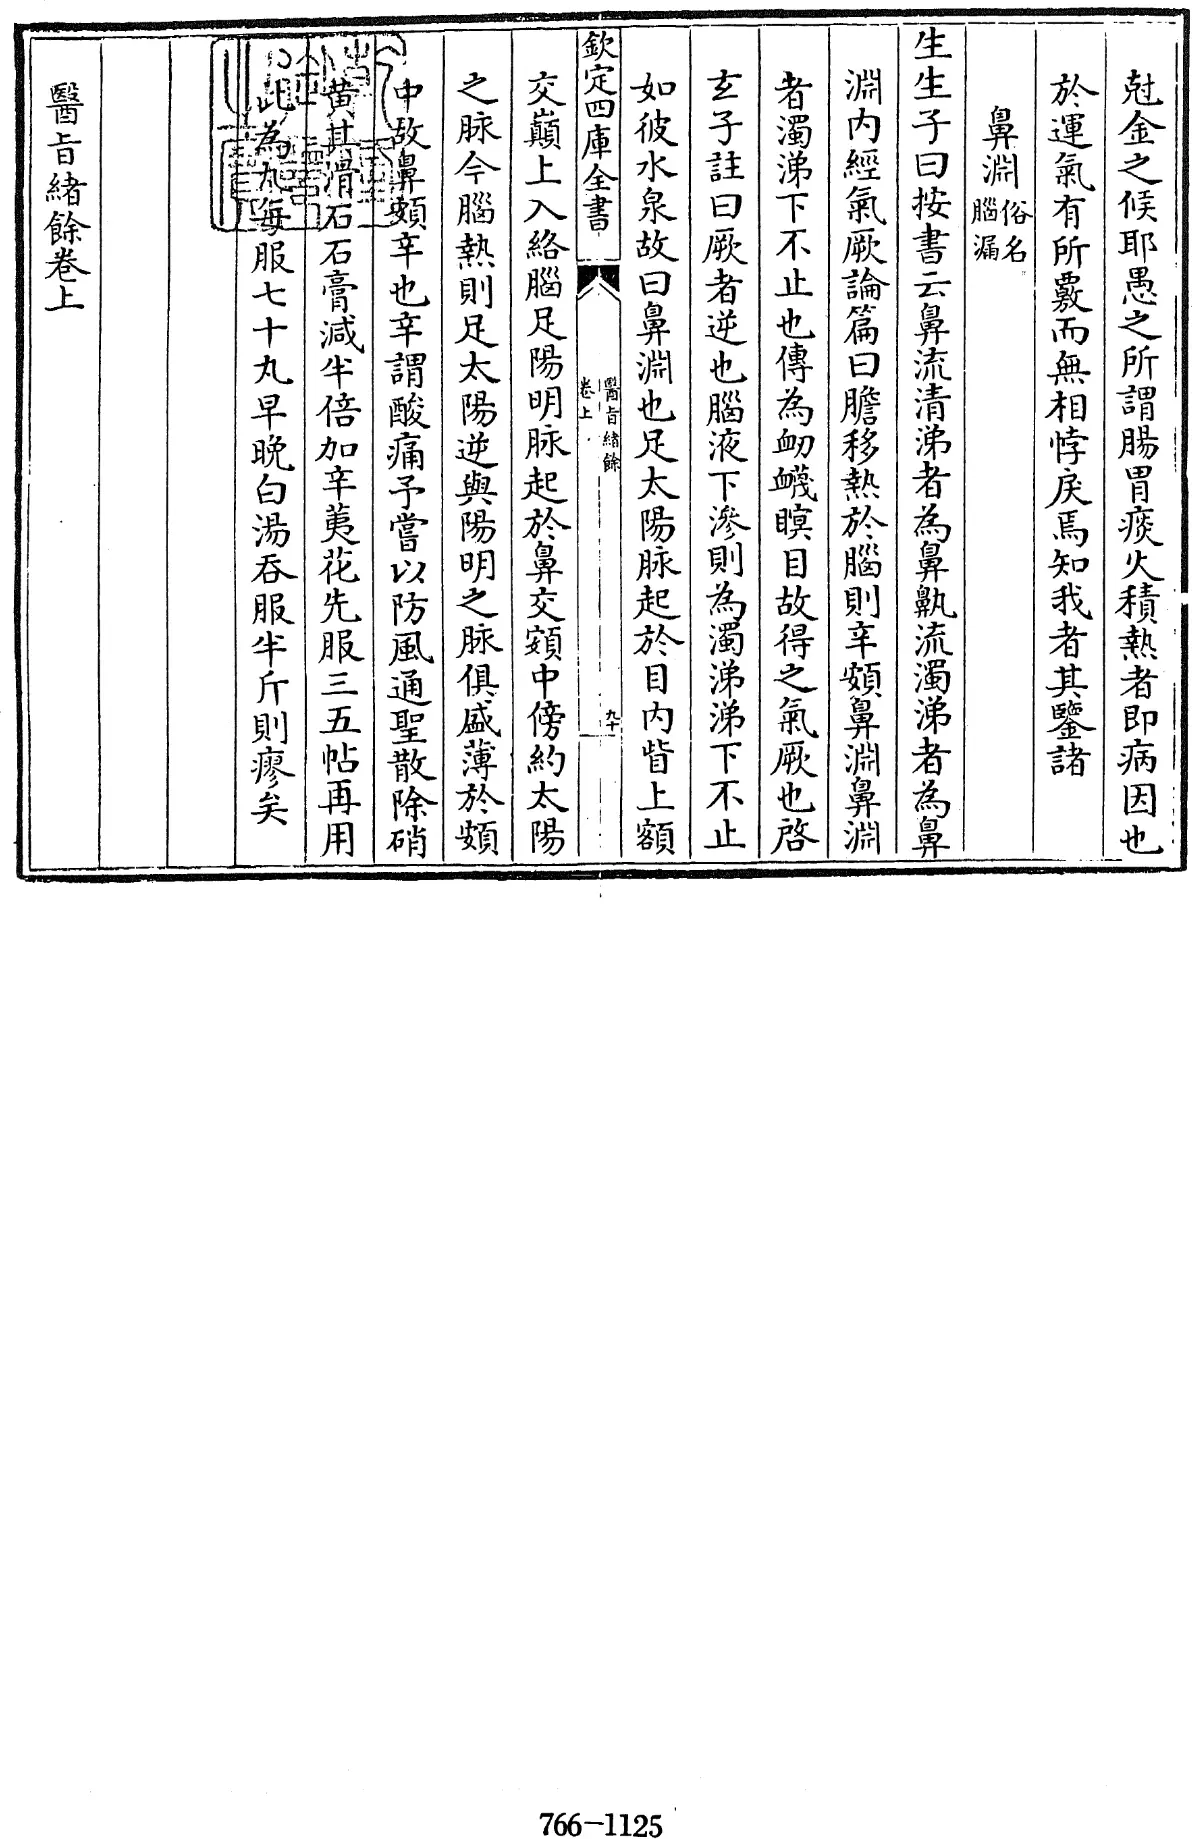 尅金之候耶愚之所謂腸胃痰火積熱者即病因也
於運氣有所覈而無相悖戾焉知我者其鑒諸
鼻淵俗名腦漏
生生子曰按書云鼻流清涕者為鼻鼽流濁涕者為鼻
淵内經氣厥論篇曰膽移熱於腦則辛頞鼻淵鼻淵
者濁涕下不止也傳為衂衊瞑目故得之氣厥也啓
玄子註曰厥者逆也腦液下滲則為濁涕涕下不止
如彼水泉故曰鼻淵也足太陽脉起於目内眥上額
欽定四庫全書
醫旨緒餘
卷上
九十
交巔上入絡腦足陽明脉起於鼻交頞中傍約太陽
之脉今腦熱則足太陽逆與陽明之脉俱盛薄於頞
中故鼻頞辛也辛謂酸痛予嘗以防風通聖散除硝
黄其滑石石膏減半倍加辛荑花先服三五帖再用
此為丸每服七十丸早晚白湯吞服半斤則瘳矣
醫旨緒餘卷上
766-1125